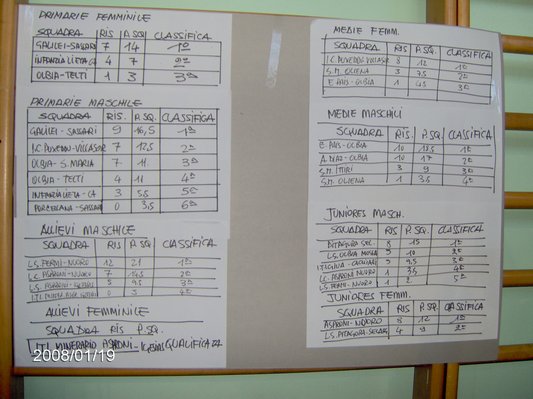 PRIMARIE FEMMINILE
SQUADRA RIS P.SQ. CLASSIFICA
GALILEI-SASSARI 7 14 1º
INFANZIA LIETA CA 4 7 2º
OLBIA-TELTI 1 3 3º
PRIMARIE MASCHILE
SQUADRA RIS. P.SQ. CLASSIFICA
GALILEI-SASSARI 9 16,5 1º
7 12,5 2º
OLBIA-S.MARIA 7 11 3º
OLBIA-TELTI 4 11 4º
INFANZIA LIETA-CA 3 5,5 5º
PORCELLANA-SASSARI 0 3,5 6º
ALLIEVI MASCHILE
SQUADRA RIS P.SQ. CLASSIFICA
L.S. FERMI-NUORO 12 21 1º
I.C. ASPRONI-NUORO 7 14,5 2º
L.S. ASPRONI-IGLESIAS 5 9,5 3º
0 3 4º
ALLIEVI FEMMINILE
SQUADRA RIS P.SQ.
I.T.I. MINERARIO ASPRONI-IGLESIAS QUALIFICATA
2008/01/19
MEDIE FEMM.
SQUADRA RIS P.SQ. CLASSIFICA
8 12 1º
S.M. OLIENA 3 7,5 2º
E. PAIS-OLBIA 1 4,5 3º
MEDIE MASCHILI
SQUADRA RIS. P.SQ. CLASSIFICA
E. PAIS-OLBIA 10 1º
A. DIAZ-OLBIA 10 17 2º
S.M. ITTIRI 3 9 3º
S.M. OLIENA 1 3,5 4º
JUNIORES MASCH.
SQUADRA RIS P.SQ. CLASSIFICA
PITAGORA SEL. 8 15 1º
L.S. OLBIA 5 10 2º
5 9,5 3º
I.C. ASPRONI NUORO 1 3,5 4º
L.S. FERMI-NUORO 1 2 5º
JUNIORES FEMM.
SQUADRA RIS P.SQ. CLASSIFICA
ASPRONI-NUORO 8 12 1º
L.S. PITAGORA-SELARGIUS 4 9 2º